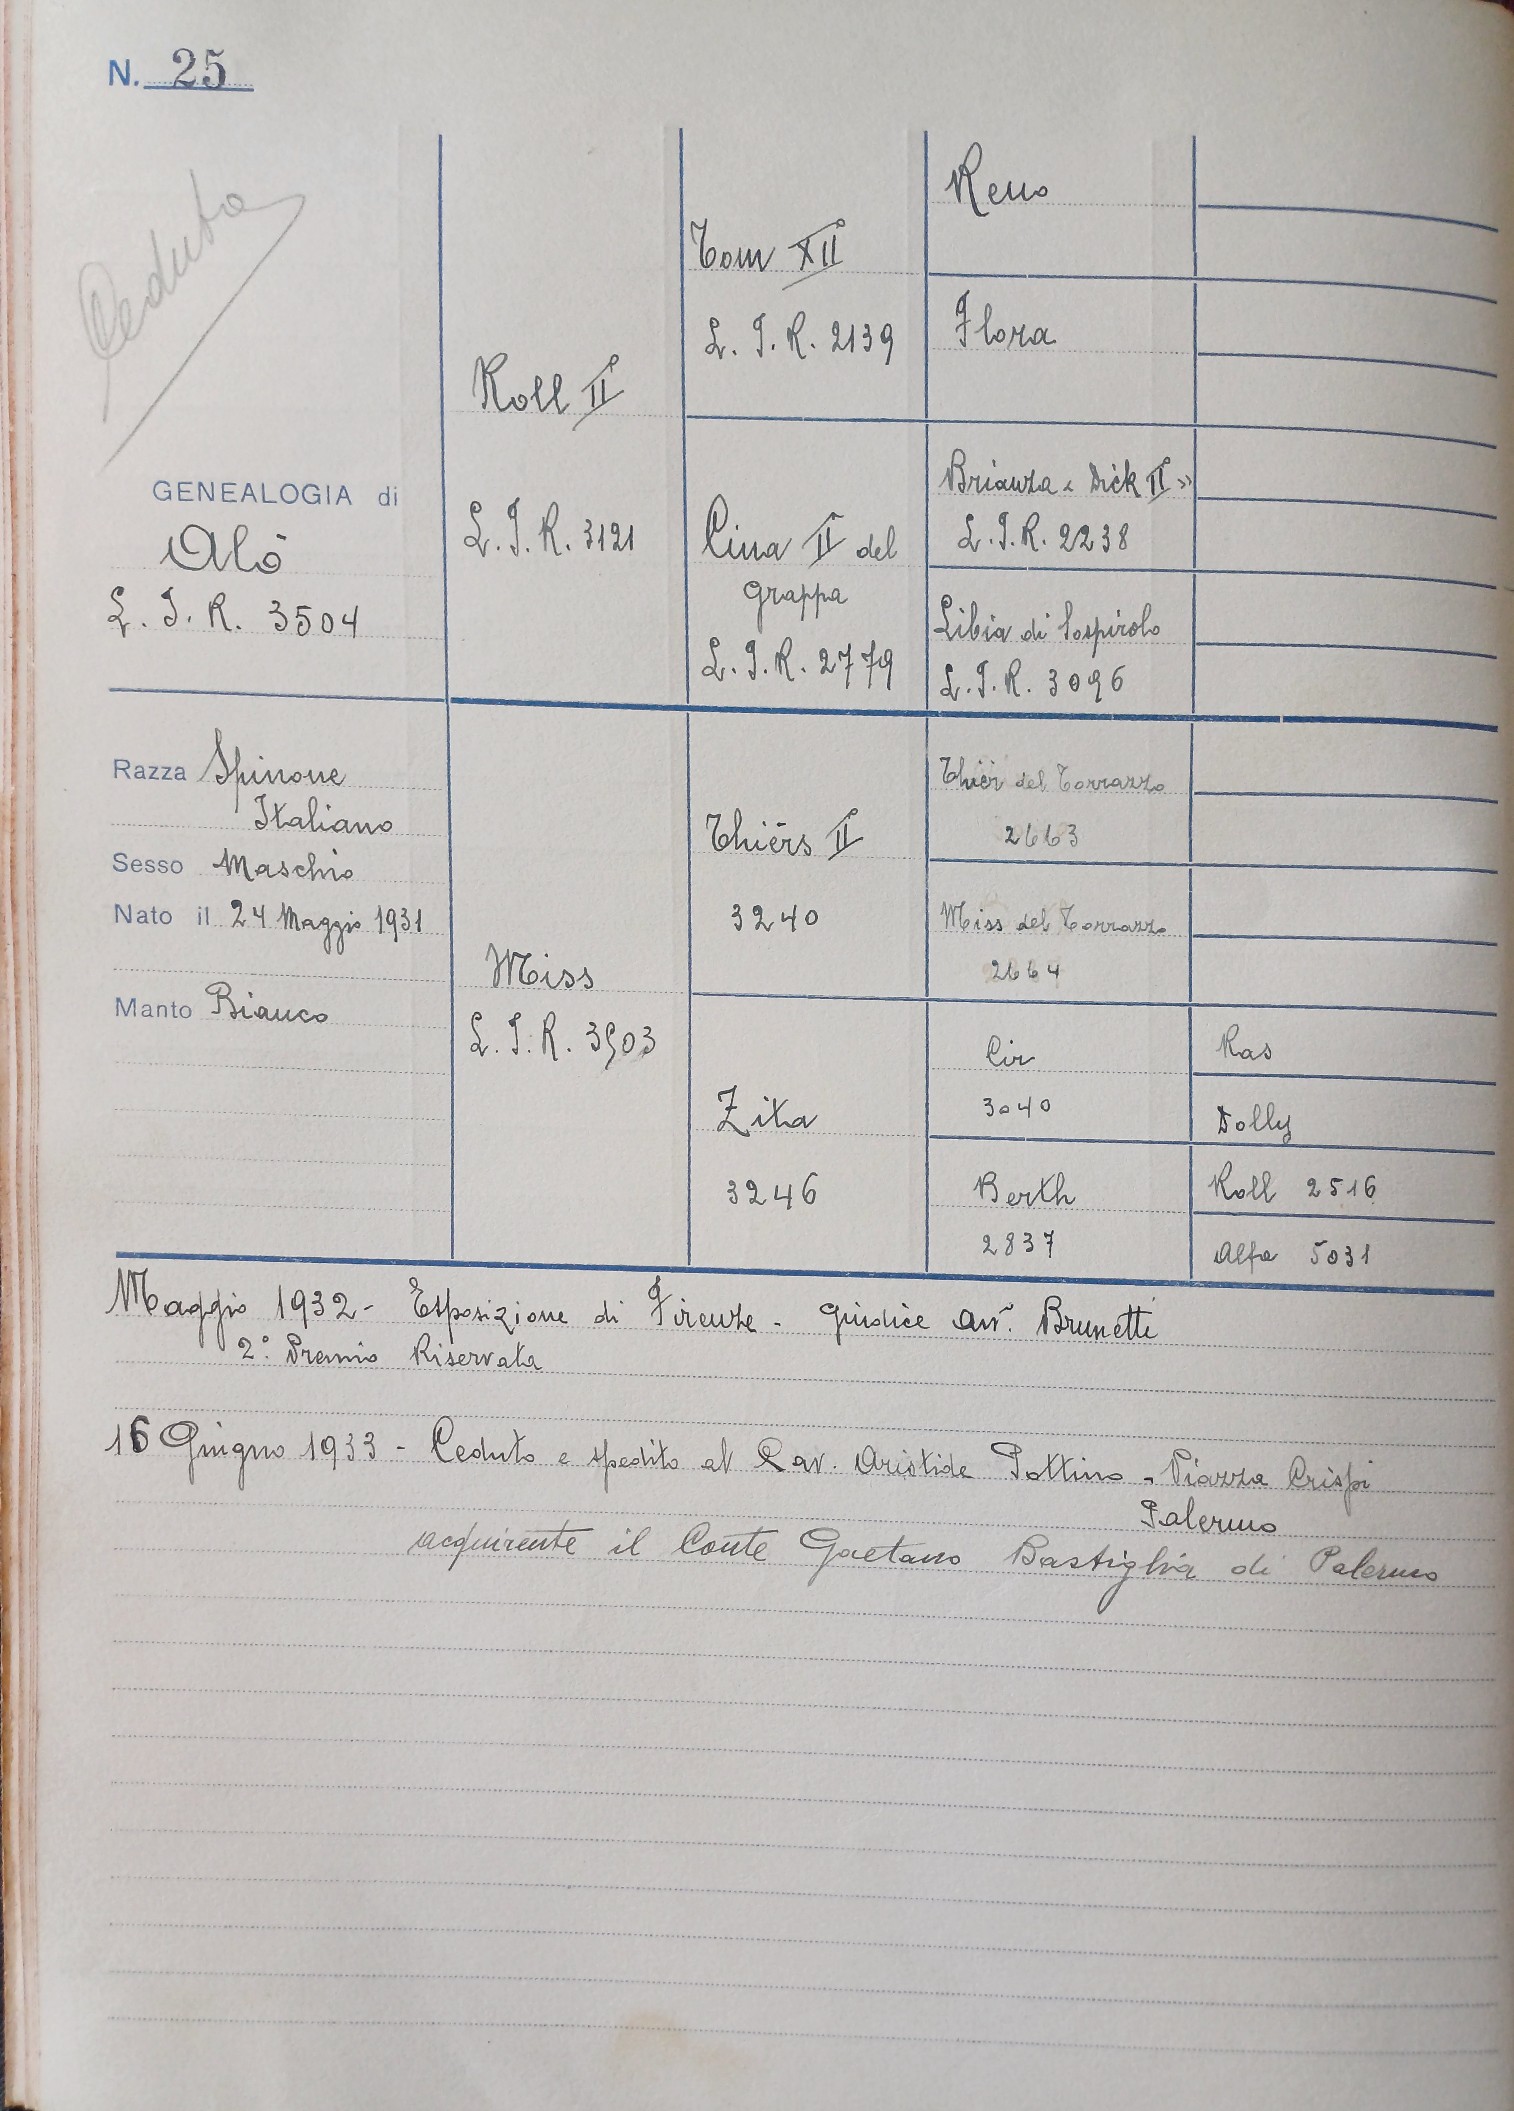 N. 25
Ceduto
GENEALOGIA di
Alò
L. I. R. 3504
Razza Spinone
Italiano
Sesso Maschio
Nato il 24 Maggio 1931
Manto Bianco
Roll II
L. I. R. 3121
Miss
L. I. R. 3903
Tom XII
L. I. R. 2139
Cina II del
grappa
L. I. R. 2779
Thiérs II
3240
Zita
3246
Reno
Flora
Brianza « Dick II »
L. I. R. 2238
Libia di Sospirolo
L. I. R. 3096
Thiér del Torrazzo
2663
Miss del Torrazzo
2664
Cir
3040
Berth
2837
Ras
Dolly
Roll 2516
Alfa 5031
Maggio 1932 - Esposizione di Firenze - Giudice Avv. Brunetti
2° Premio Riservata
16 Giugno 1933 - Ceduto e spedito al Cav. Aristide Pottino - Piazza Crispi
Palermo
acquirente il Conte Gaetano Bastiglia di Palermo